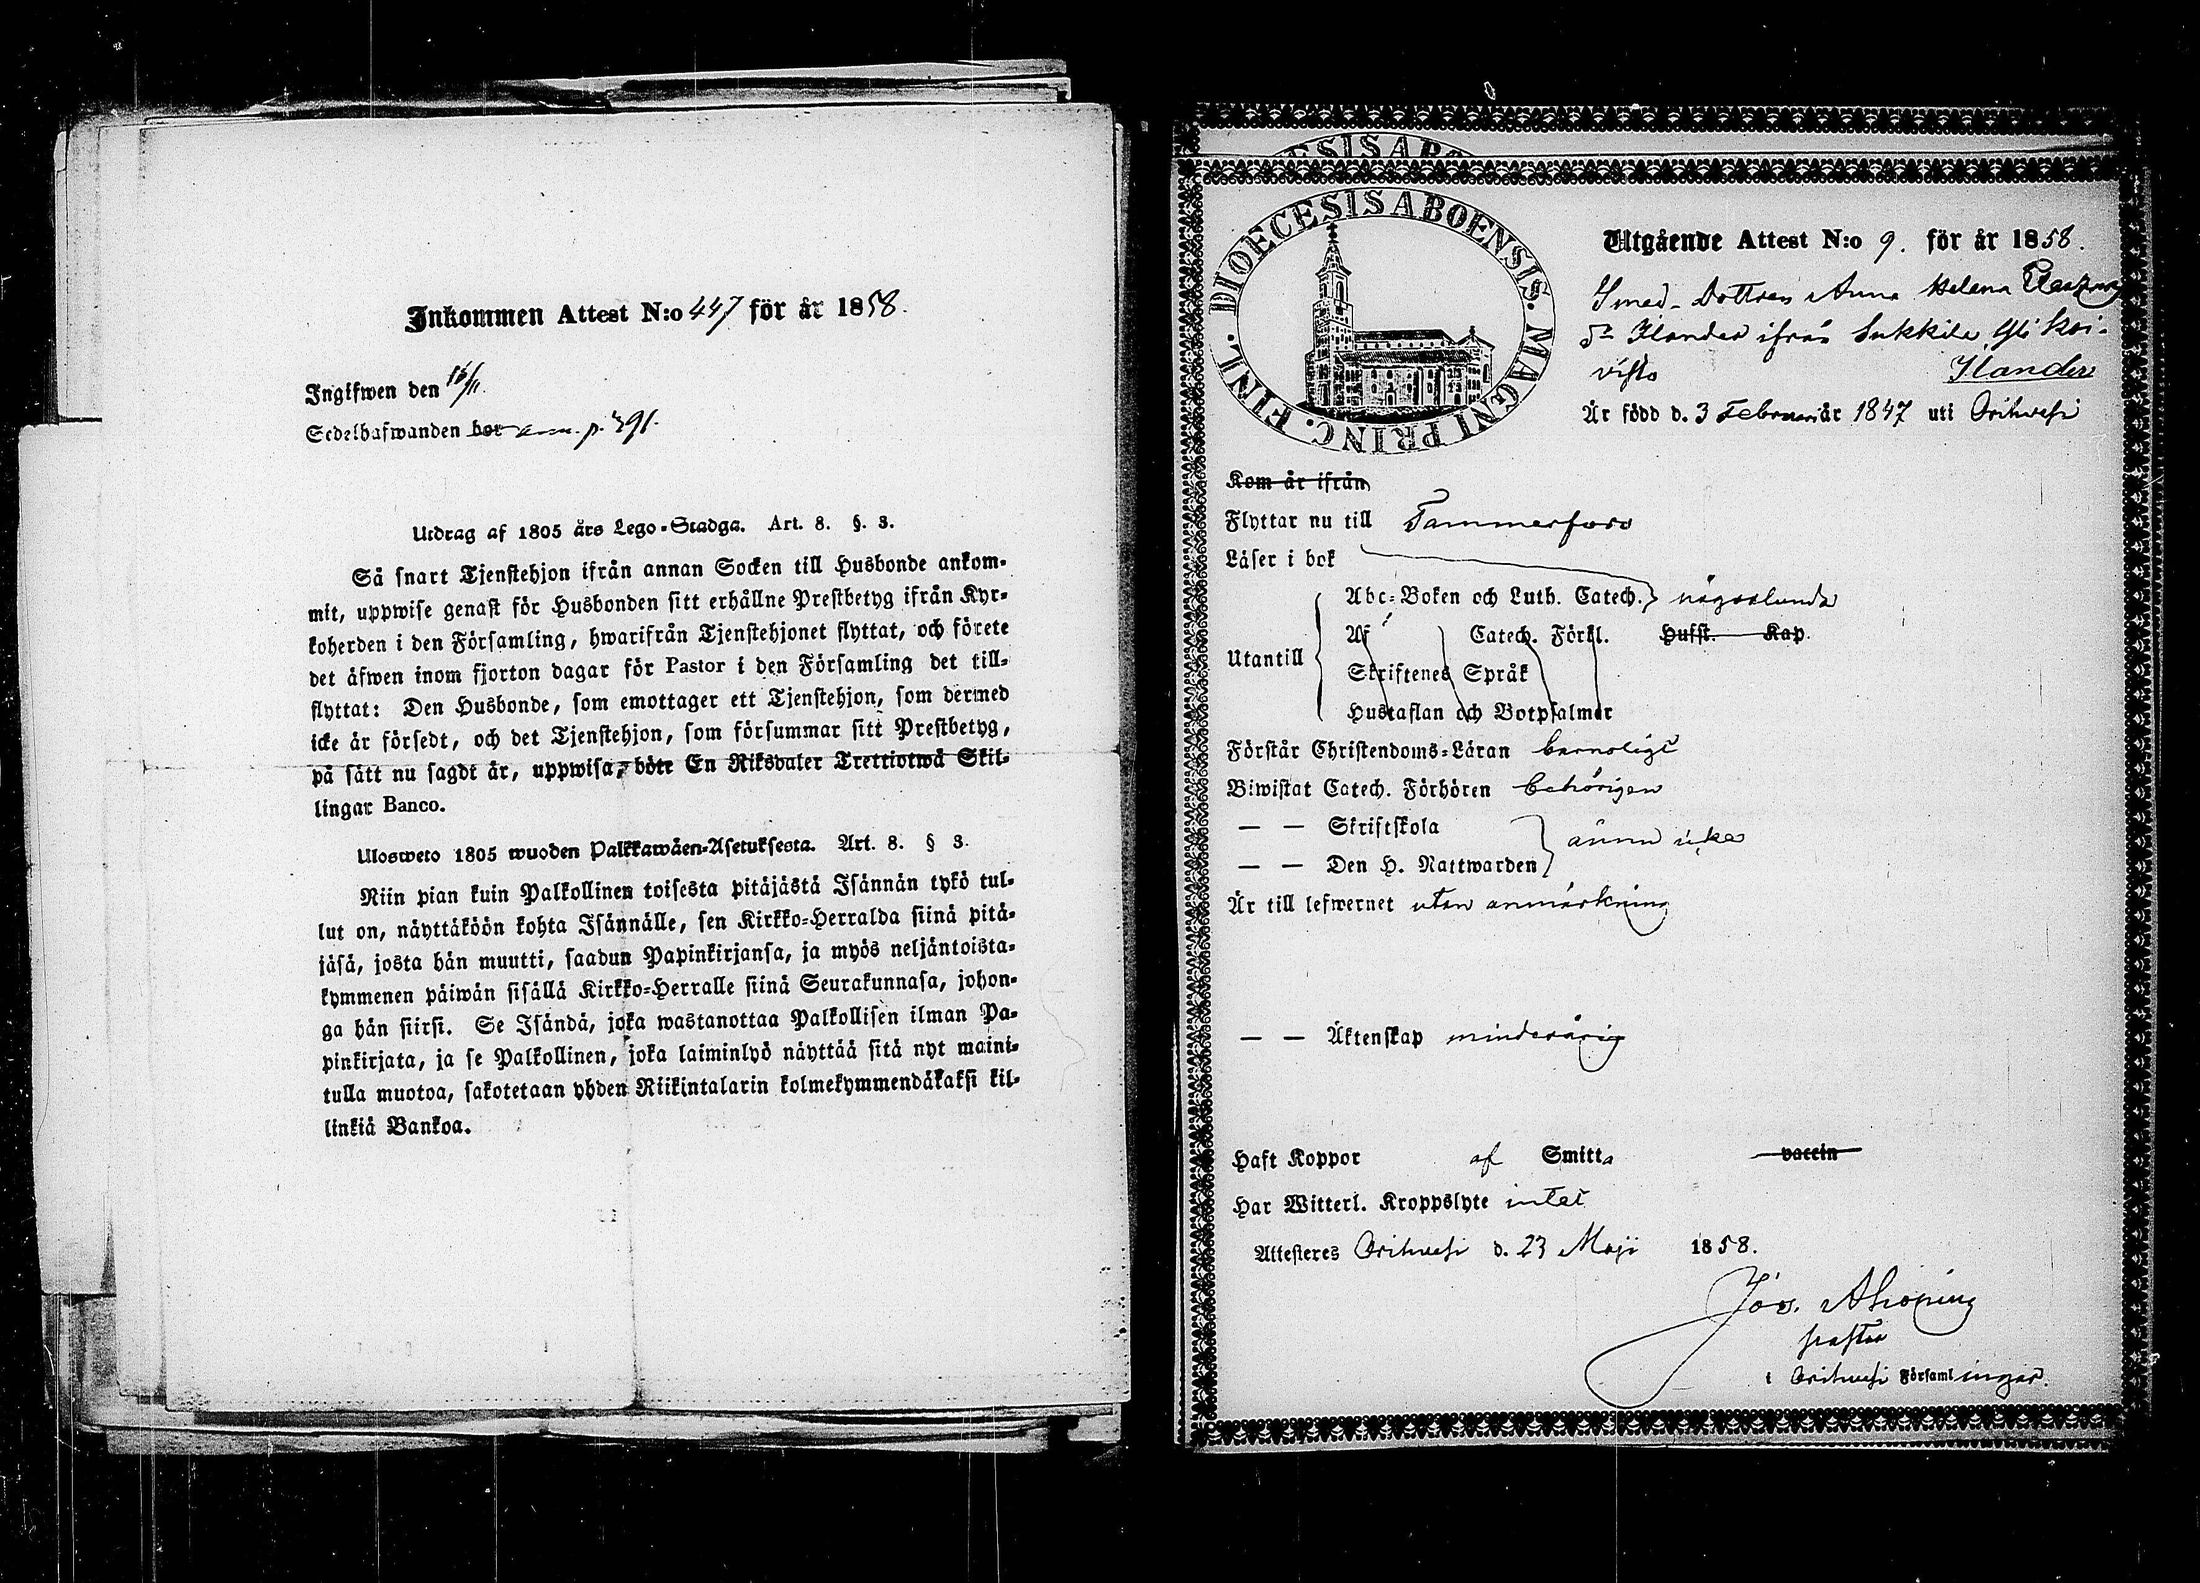 Inkommen Attest N:o 447 för år 1858.
Ingifwen den 16/11.
Sedelhafwanden bor ann. p. 291.
Utdrag af 1805 års Lego-Stadga. Art. 8. §. 3.
Så snart Tjenstehjon ifrån annan Socken till Husbonde ankom-
mit, uppwise genast för Husbonden sitt erhållne Prestbetyg ifrån Kyr-
koherden i den Församling, hwarifrån Tjenstehjonet flyttat, och förete
det äfwen inom fjorton dagar för Pastor i den Församling det till-
flyttat: Den Husbonde, som emottager ett Tjenstehjon, som dermed
icke är försedt, och det Tjenstehjon, som försummar sitt Prestbetyg,
på sätt nu sagdt är, uppwisa, böte En Riksdaler Trettiotwå Skil-
lingar Banco.
Ulosweto 1805 wuoden Palkkawäen-Asetuksesta. Art. 8. § 3.
Niin pian kuin Palkollinen toisesta pitäjästä Isännän tykö tul-
lut on, näyttäköön kohta Isännälle, sen Kirkko-Herralda siinä pitä-
jäsä, josta hän muutti, saadun Papinkirjansa, ja myös neljäntoista-
kymmenen päiwän sisällä Kirkko-Herralle siinä Seurakunnasa, johon-
ga hän siirsi. Se Isändä, joka wastanottaa Palkollisen ilman Pa-
pinkirjata, ja se Palkollinen, joka laiminlyö näyttää sitä nyt maini-
tulla muotoa, sakotetaan yhden Riikintalarin kolmekymmendäkaksi kil-
linkiä Bankoa.
DIOECESIS ABOENSIS. MAGNI PRINC. FINL.
Utgående Attest N:o 9. för år 1858.
Smed-Dottren Anna Helena
Ilander ifrån Sukkila, Yli Koi-
visto Ilander
Är född d. 3 Februari år 1847 uti Orihvesi
Kom år ifrån
Flyttar nu till Tammerfors
Läser i bok
Abc-Boken och Luth. Catech. någorlunda
Af Catech. Förkl. Hufst. Kap.
Utantill
Skriftenes Språk
Hustaflan och Botpsalmer
Förstår Christendoms-Läran barnsligt
Biwistat Catech. Förhören behörigen
— — Skriftskola
ännu icke
— — Den H. Nattwarden
Är till lefwernet utan anmärkning
— — Äktenskap minderårig
Haft Koppor af Smitta vaccin
Har Witterl. Kroppslyte intet
Attesteres Orihvesi d. 23 Maji 1858.
Jos. Ahoning
pastor
i Orihvesi Församlingar.